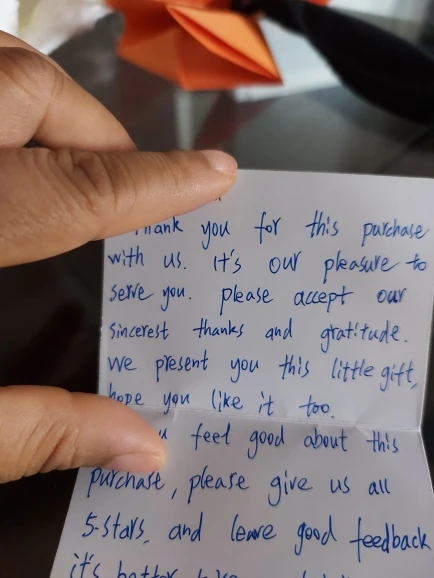 Thank you for this purchase
with us. It's our pleasure to
serve you. please accept our
sincerest thanks and gratitude.
We present you this little gift,
hope you like it too.
feel good about this
purchase, please give us all
5-stars, and leave good feedback
it's better